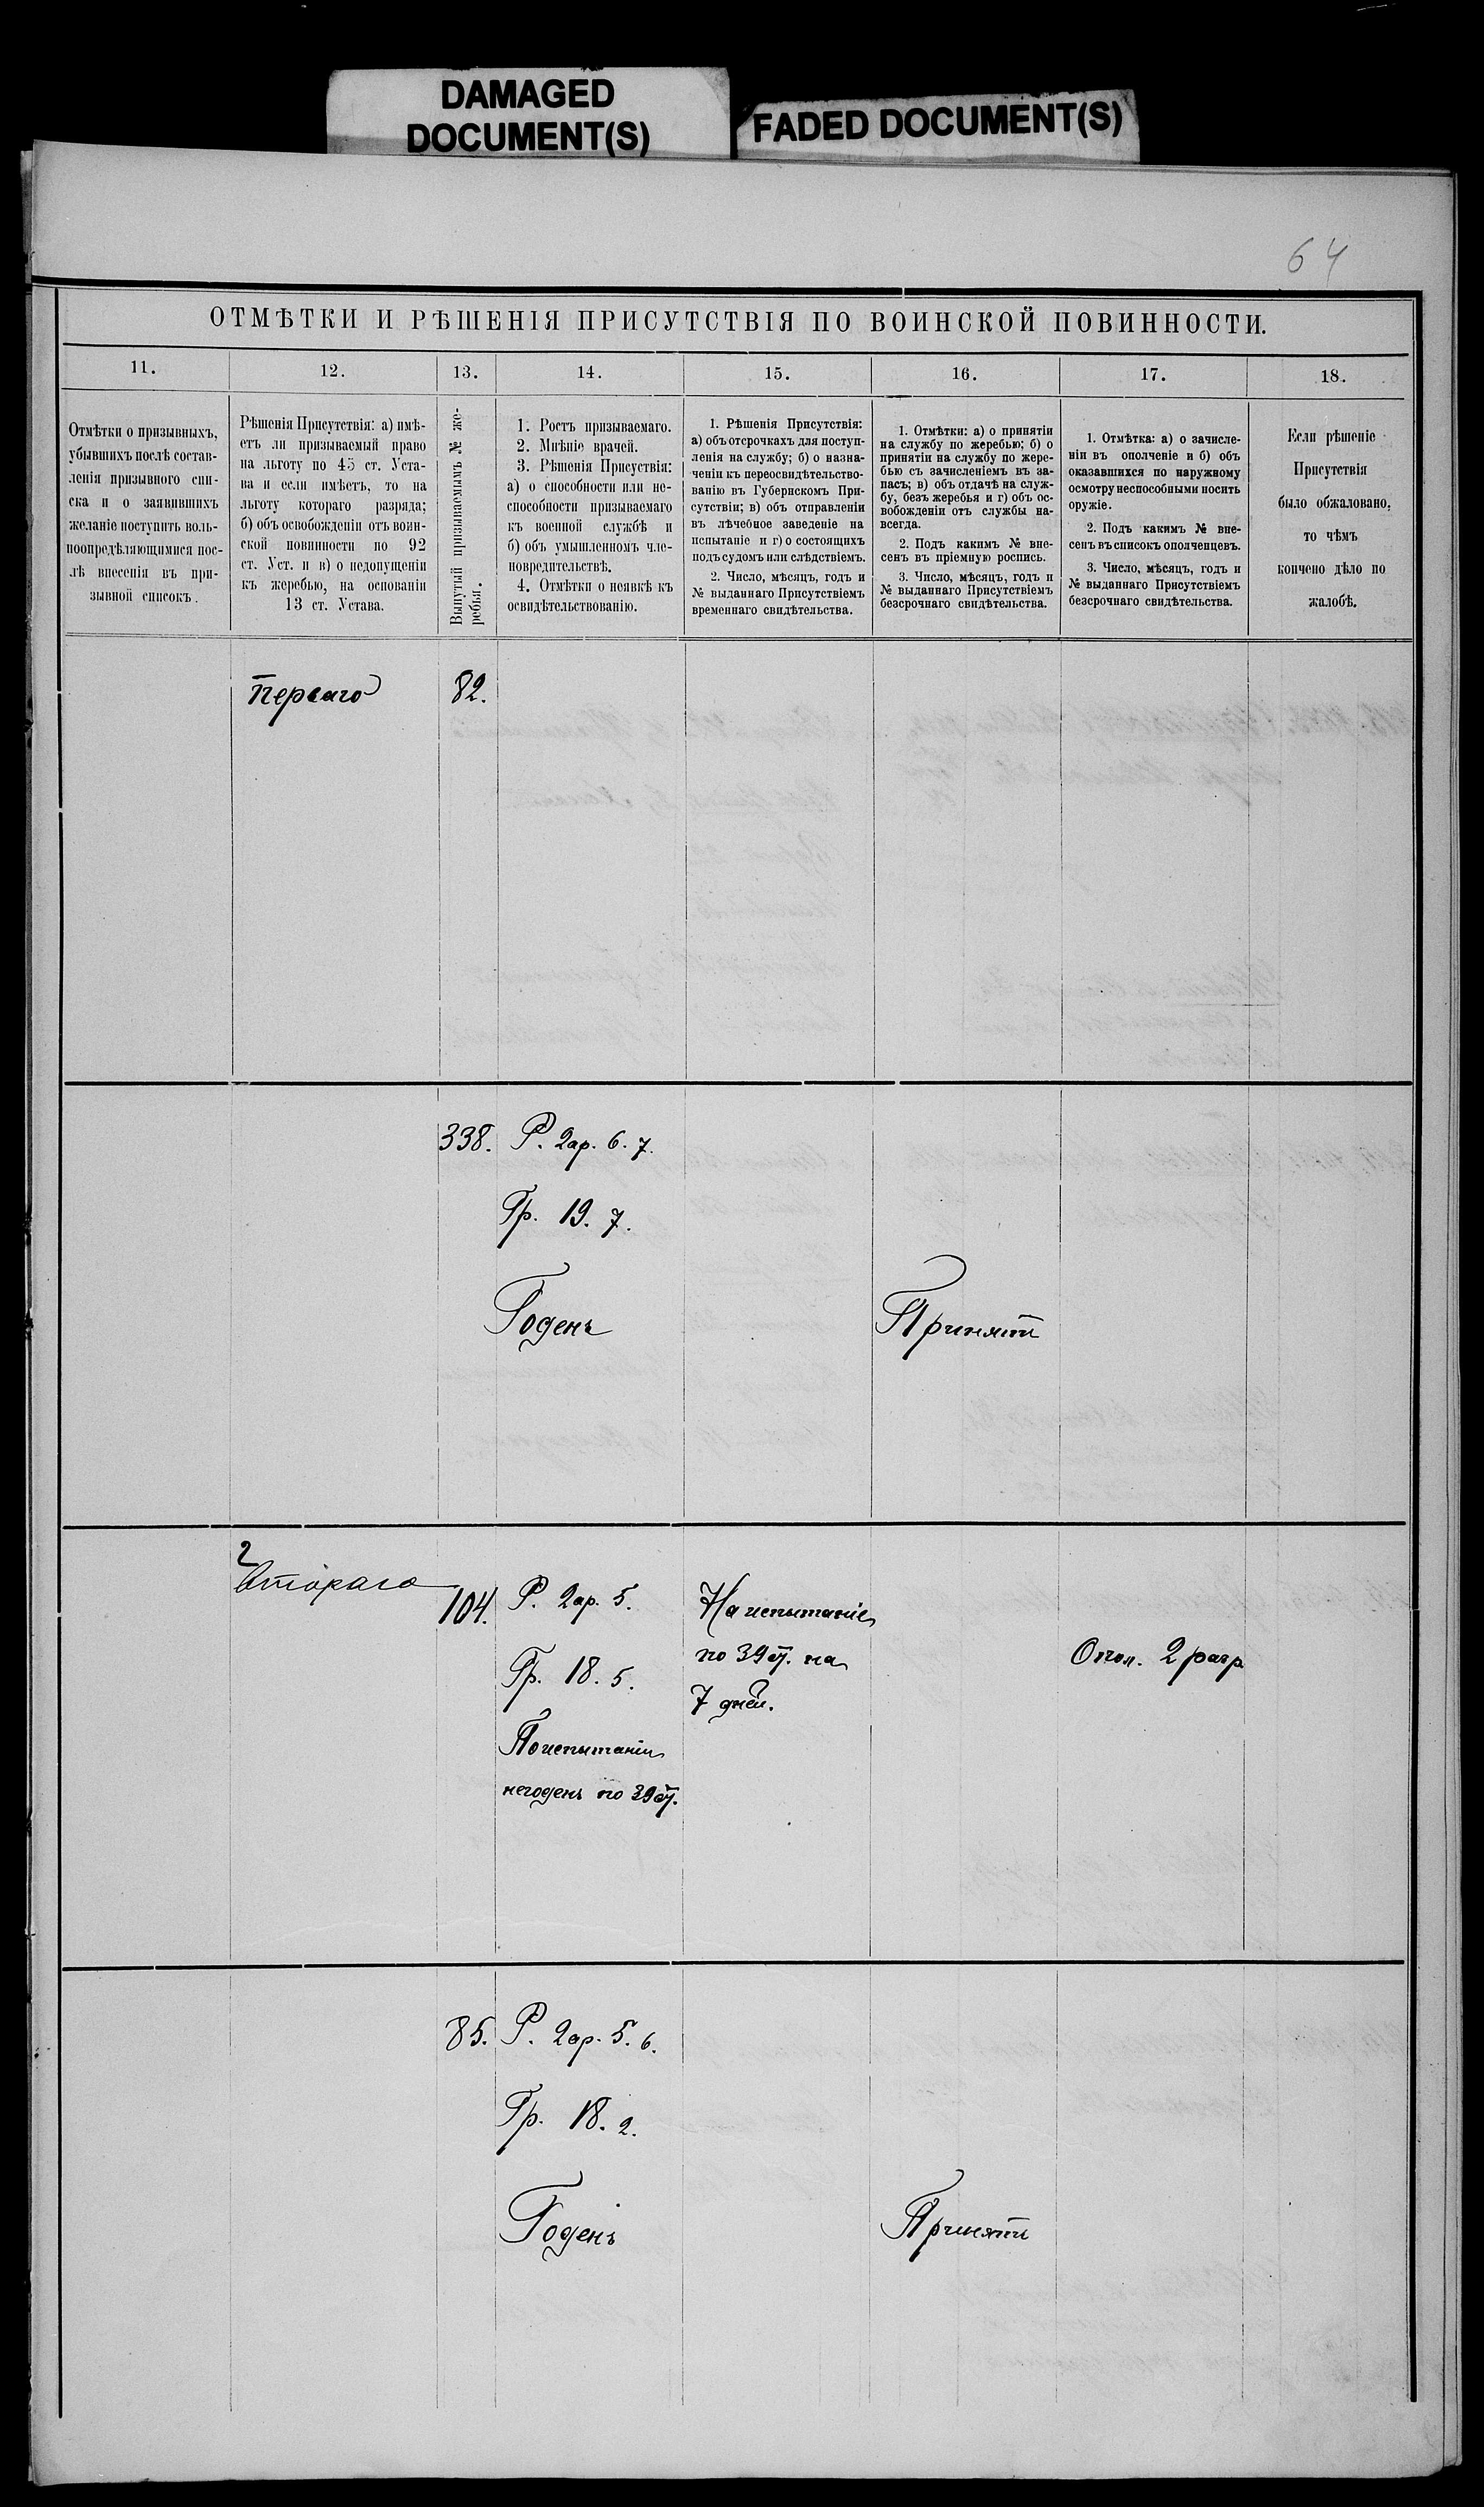 DAMAGED
DOCUMENT(S)
FADED DOCUMENT(S)
64
ОТМѢТКИ И РѢШЕНІЯ ПРИСУТСТВІЯ ПО ВОИНСКОЙ ПОВИННОСТИ.
11.
12.
13.
14.
15.
16.
17.
18.
Отмѣтки о призывныхъ,
убывшихъ послѣ состав-
ленія призывного спи-
ска и о заявившихъ
желаніе поступить воль-
ноопредѣляющимися пос-
лѣ внесенія въ при-
зывной списокъ.
Рѣшенія Присутствія: а) имѣ-
етъ ли призываемый право
на льготу по 45 ст. Уста-
ва и если имѣетъ, то на
льготу котораго разряда;
б) объ освобожденіи отъ воин-
ской повинности по 92
ст. Уст. и в) о недопущеніи
къ жеребью, на основаніи
13 ст. Устава.
Вынутый призываемымъ № же-
ребья.
1. Ростъ призываемаго.
2. Мнѣніе врачей.
3. Рѣшенія Присуствія:
а) о способности или не-
способности призываемаго
къ военной службѣ и
б) объ умышленномъ чле-
новредительствѣ.
4. Отмѣтки о неявкѣ къ
освидѣтельствованію.
1. Рѣшенія Присутствія:
а) объ отсрочкахъ для поступ-
ленія на службу; б) о назна-
ченіи къ переосвидѣтельство-
ванію въ Губернскомъ При-
сутствіи; в) объ отправленіи
въ лѣчебное заведеніе на
испытаніе и г) о состоящихъ
подъ судомъ или слѣдствіемъ.
2. Число, мѣсяцъ, годъ и
№ выданнаго Присутствіемъ
временнаго свидѣтельства.
1. Отмѣтки: а) о принятіи
на службу по жеребью; б) о
принятіи на службу по жере-
бью съ зачисленіемъ въ за-
пасъ; в) объ отдачѣ на служ-
бу, безъ жеребья и г) объ ос-
вобожденіи отъ службы на-
всегда.
2. Подъ какимъ № вне-
сенъ въ пріемную роспись.
3. Число, мѣсяцъ, годъ и
№ выданнаго Присутствіемъ
безсрочнаго свидѣтельства.
1. Отмѣтка: а) о зачисле-
ніи въ ополченіе и б) объ
оказавшихся по наружному
осмотру неспособными носить
оружіе.
2. Подъ какимъ № вне-
сенъ въ списокъ ополченцевъ.
3. Число, мѣсяцъ, годъ и
№ выданнаго Присутствіемъ
безсрочнаго свидѣтельства.
Если рѣшеніе
Присутствія
было обжаловано,
то чѣмъ
кончено дѣло по
жалобѣ.
Перваго
82.
338.
Р. 2ар. 6. 7.
Гр. 19. 7.
Годенъ
Принятъ
2
Втораго
104.
Р. 2ар. 5.
Гр. 18. 5.
По испытаніи
негоденъ по 39 ст.
На испытаніе
по 39 ст. на
7 дней.
Опол. 2 разр
85.
Р. 2ар. 5. 6.
Гр. 18. 2.
Годенъ
Принятъ